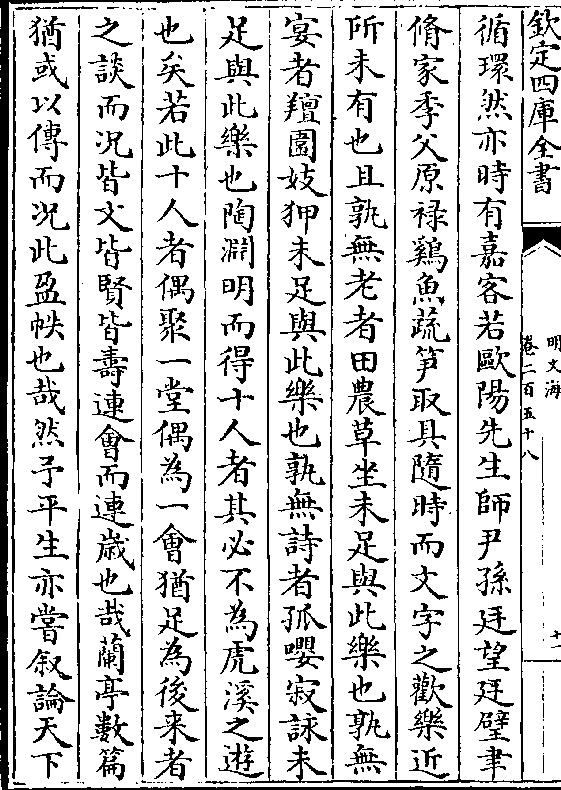 欽定四庫全書
明文海
卷二百五十八
十一
循環然亦時有嘉客若歐陽先生師尹孫廷望廷璧聿
脩家季父原祿鷄魚蔬笋取具隨時而文字之歡樂近
所未有也且孰無老者田農草坐未足與此樂也孰無
宴者羶圍妓狎未足與此樂也孰無詩者孤嚶寂詠未
足與此樂也陶淵明而得十人者其必不為虎溪之遊
也矣若此十人者偶聚一堂偶為一會猶足為後来者
之談而况皆文皆賢皆壽連會而連歲也哉蘭亭數篇
猶或以傳而况此盈帙也哉然予平生亦嘗叙論天下